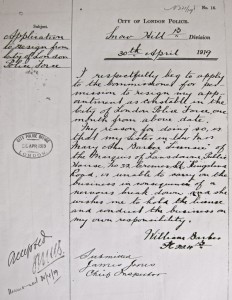 No. 16.
CITY OF LONDON POLICE.
Subject.
Snow Hill Division
30th April 1919
Application
to resign from
City of London
Police Force
I respectfully beg to apply
to the Commissioner for per-
mission to resign my appo-
intment as constable in the
City of London Police Force one
month from above date.
My reason for doing so, is
that my sister in law Mrs
Mary Ann Barber Licensee of
the Marquis of Lansdowne Public
House No 32 Cremer St, Kingsland
Road, is unable to carry on the
business in consequence of a
nervous break down, and she
wishes me to hold the license
and conduct the business on
my own responsibility.
William Barber
CITY POLICE OFFICE
30 APR 1919
LONDON
accepted
Submitted
James Jones
Chief Inspector